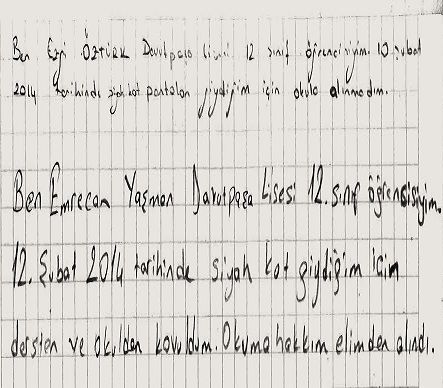 Ben Ezgi ÖZTÜRK Davutpaşa Lisesi 12 sınıf öğrencisiyim. 10 şubat
2014 tarihinde siyah kot pantolon giydiğim için okula alınmadım.
Ben Emrecan Yaşman Davutpaşa Lisesi 12. sınıf öğrencisiyim.
12. Şubat 2014 tarihinde siyah kot giydiğim için
dersten ve okuldan kovuldum. Okuma hakkım elimden alındı.